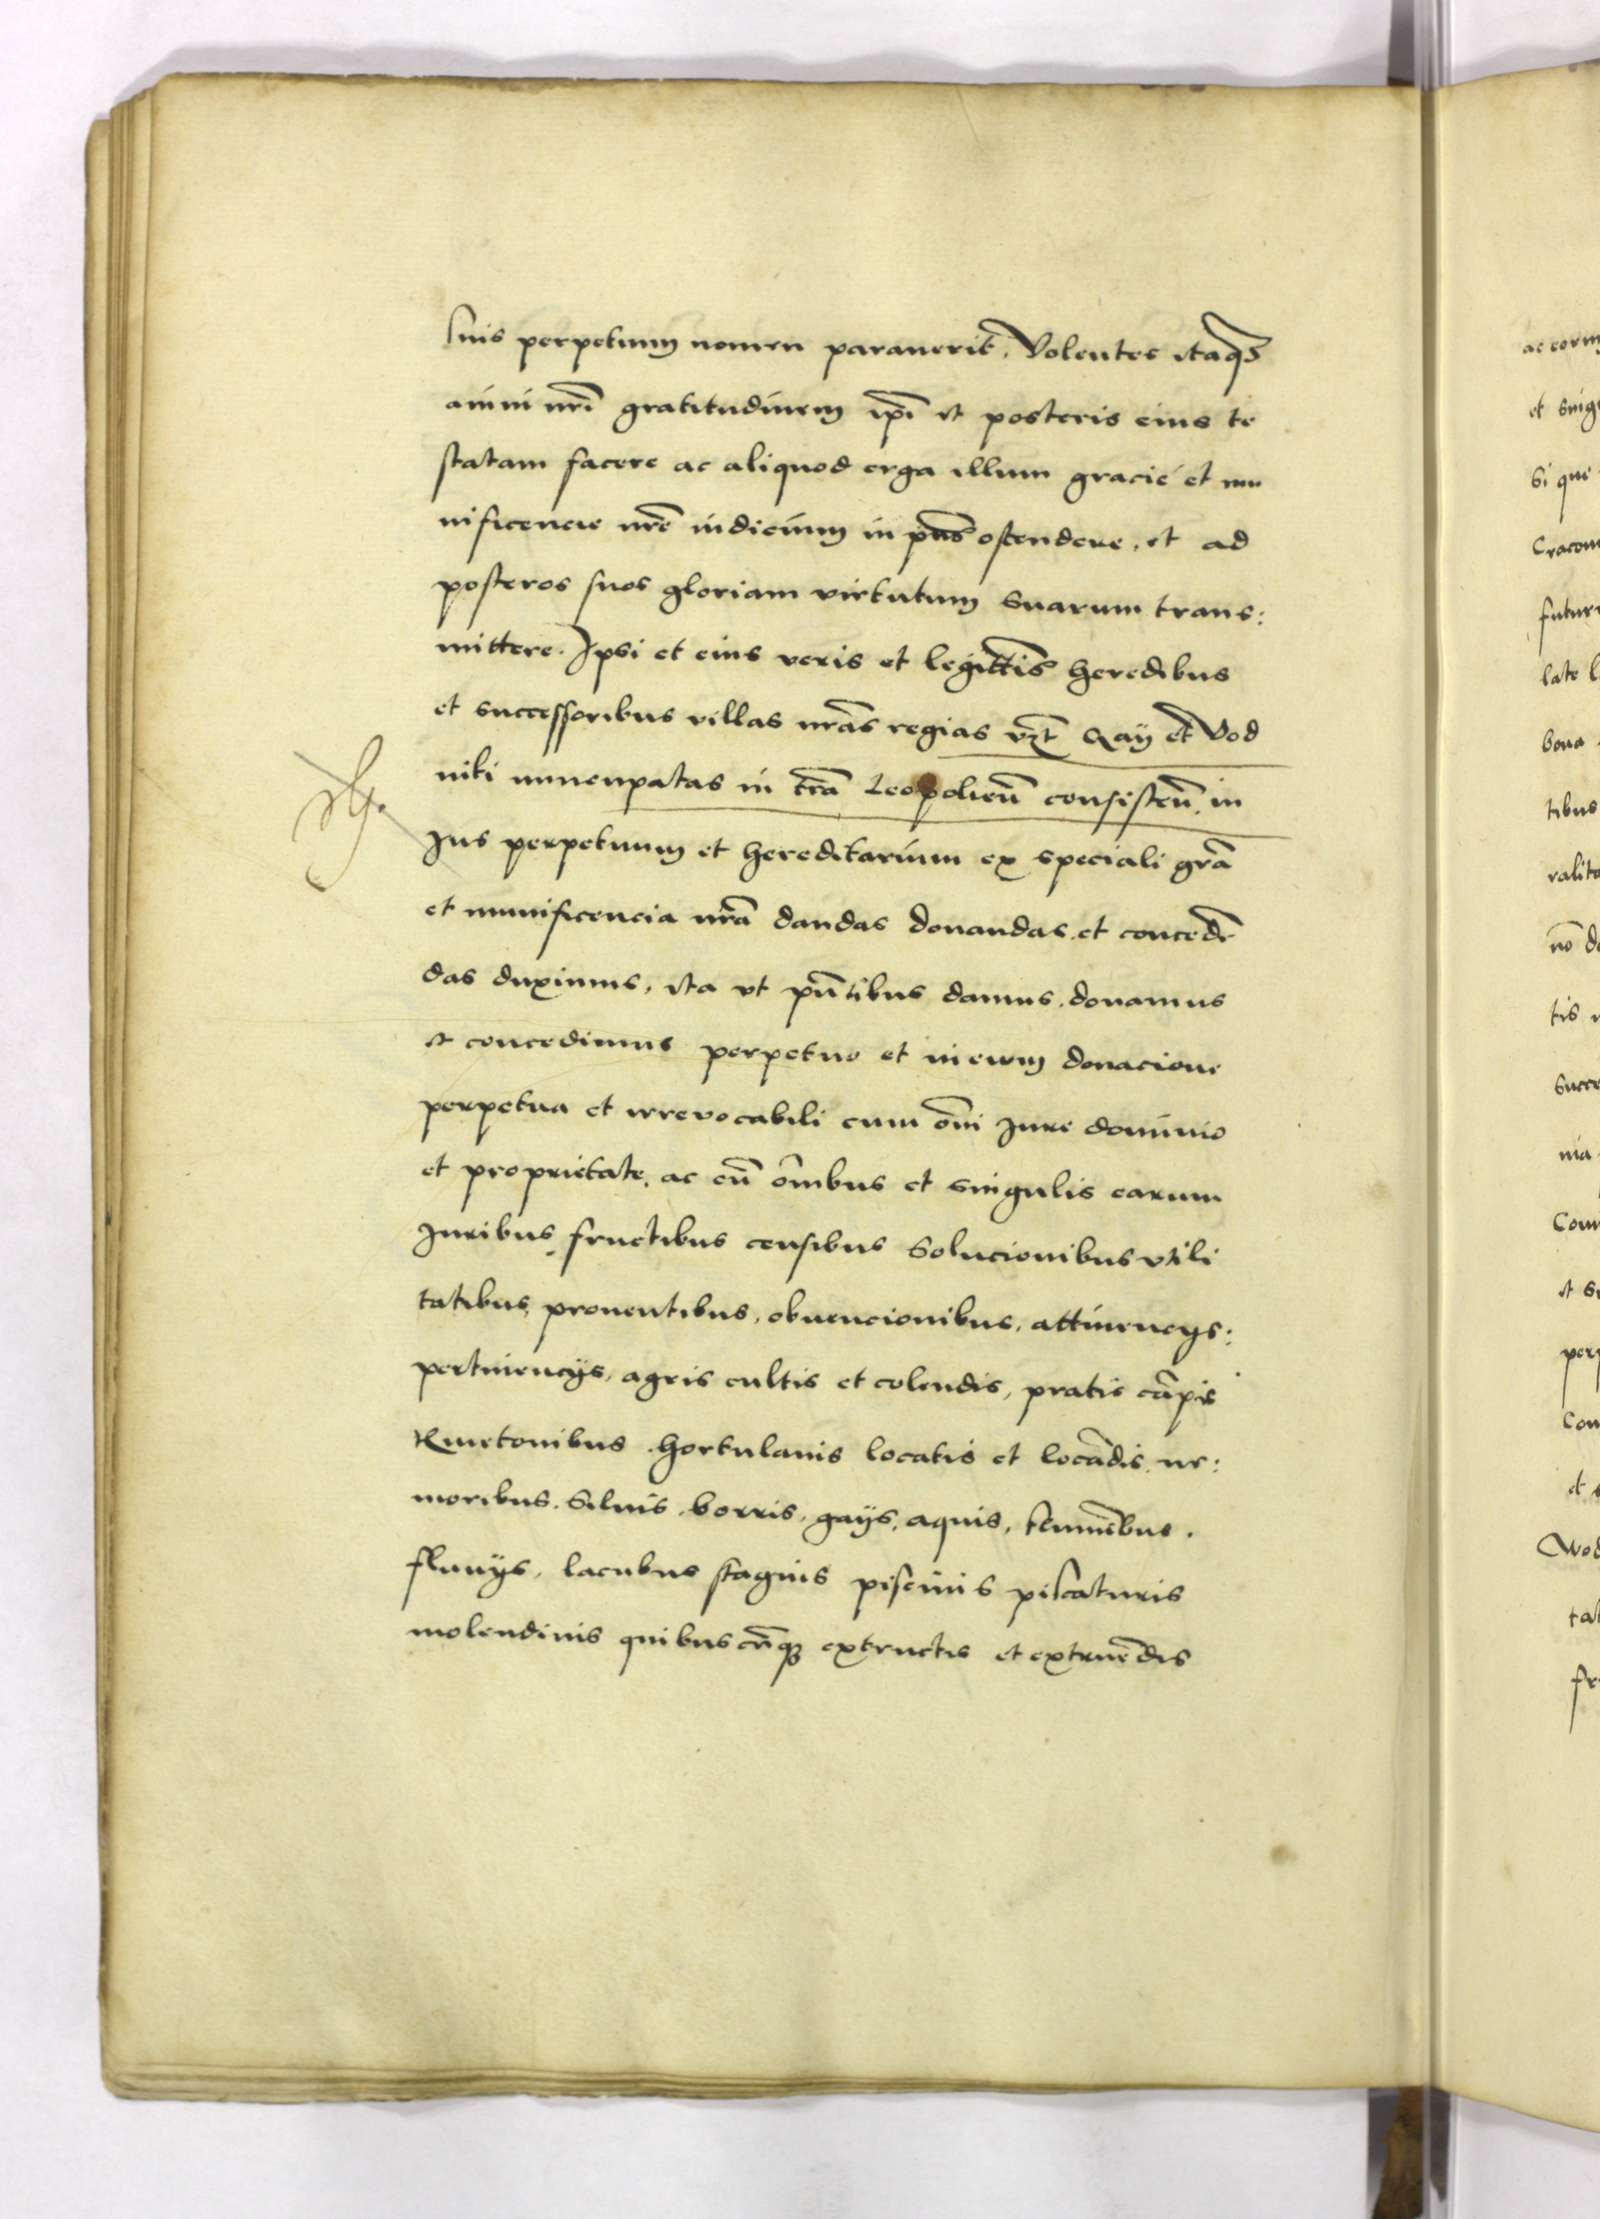 suis perpetuum nomen parauerit. Volentes itaqʒ
animi nr̄i gratitudinem ip̄i et posteris eius te
statam facere ac aliquod erga illum gracie et mu
nificencie nr̄e indicium in pn̄s ostendere, et ad
posteros suos gloriam virtutum suarum trans:
mittere. Ipsi et eius veris et legittīs heredibus
et successoribus villas nr̄as regias vʒt Gay et Vod
niki nuncupatas in tr̄a Leopolień consisteń. in
Jus perpetuum et hereditarium ex speciali gr̄a
et munificencia nr̄a dandas donandas et concedē
das duximus, ita vt pn̄tibus damus. donamus
et concedimus perpetuo et in euum donacione
perpetua et irreuocabili cum om̄i Jure dominio
et proprietate, ac cū om̄ibus et singulis earum
Juribus, fructibus censibus solucionibus vtili
tatibus, prouentibus, obuencionibus, attinencys:
pertinencÿs, agris cultis et colendis, pratis cāpis
Kmetonibus. hortulanis locatis et locādis, ne:
moribus. Siluis. borris, gaÿs, aquis, fluminībus.
fluuÿs, lacubus stagnis piscinis piscaturis
molendinis quibuscūqʒ extructis et extruēdis